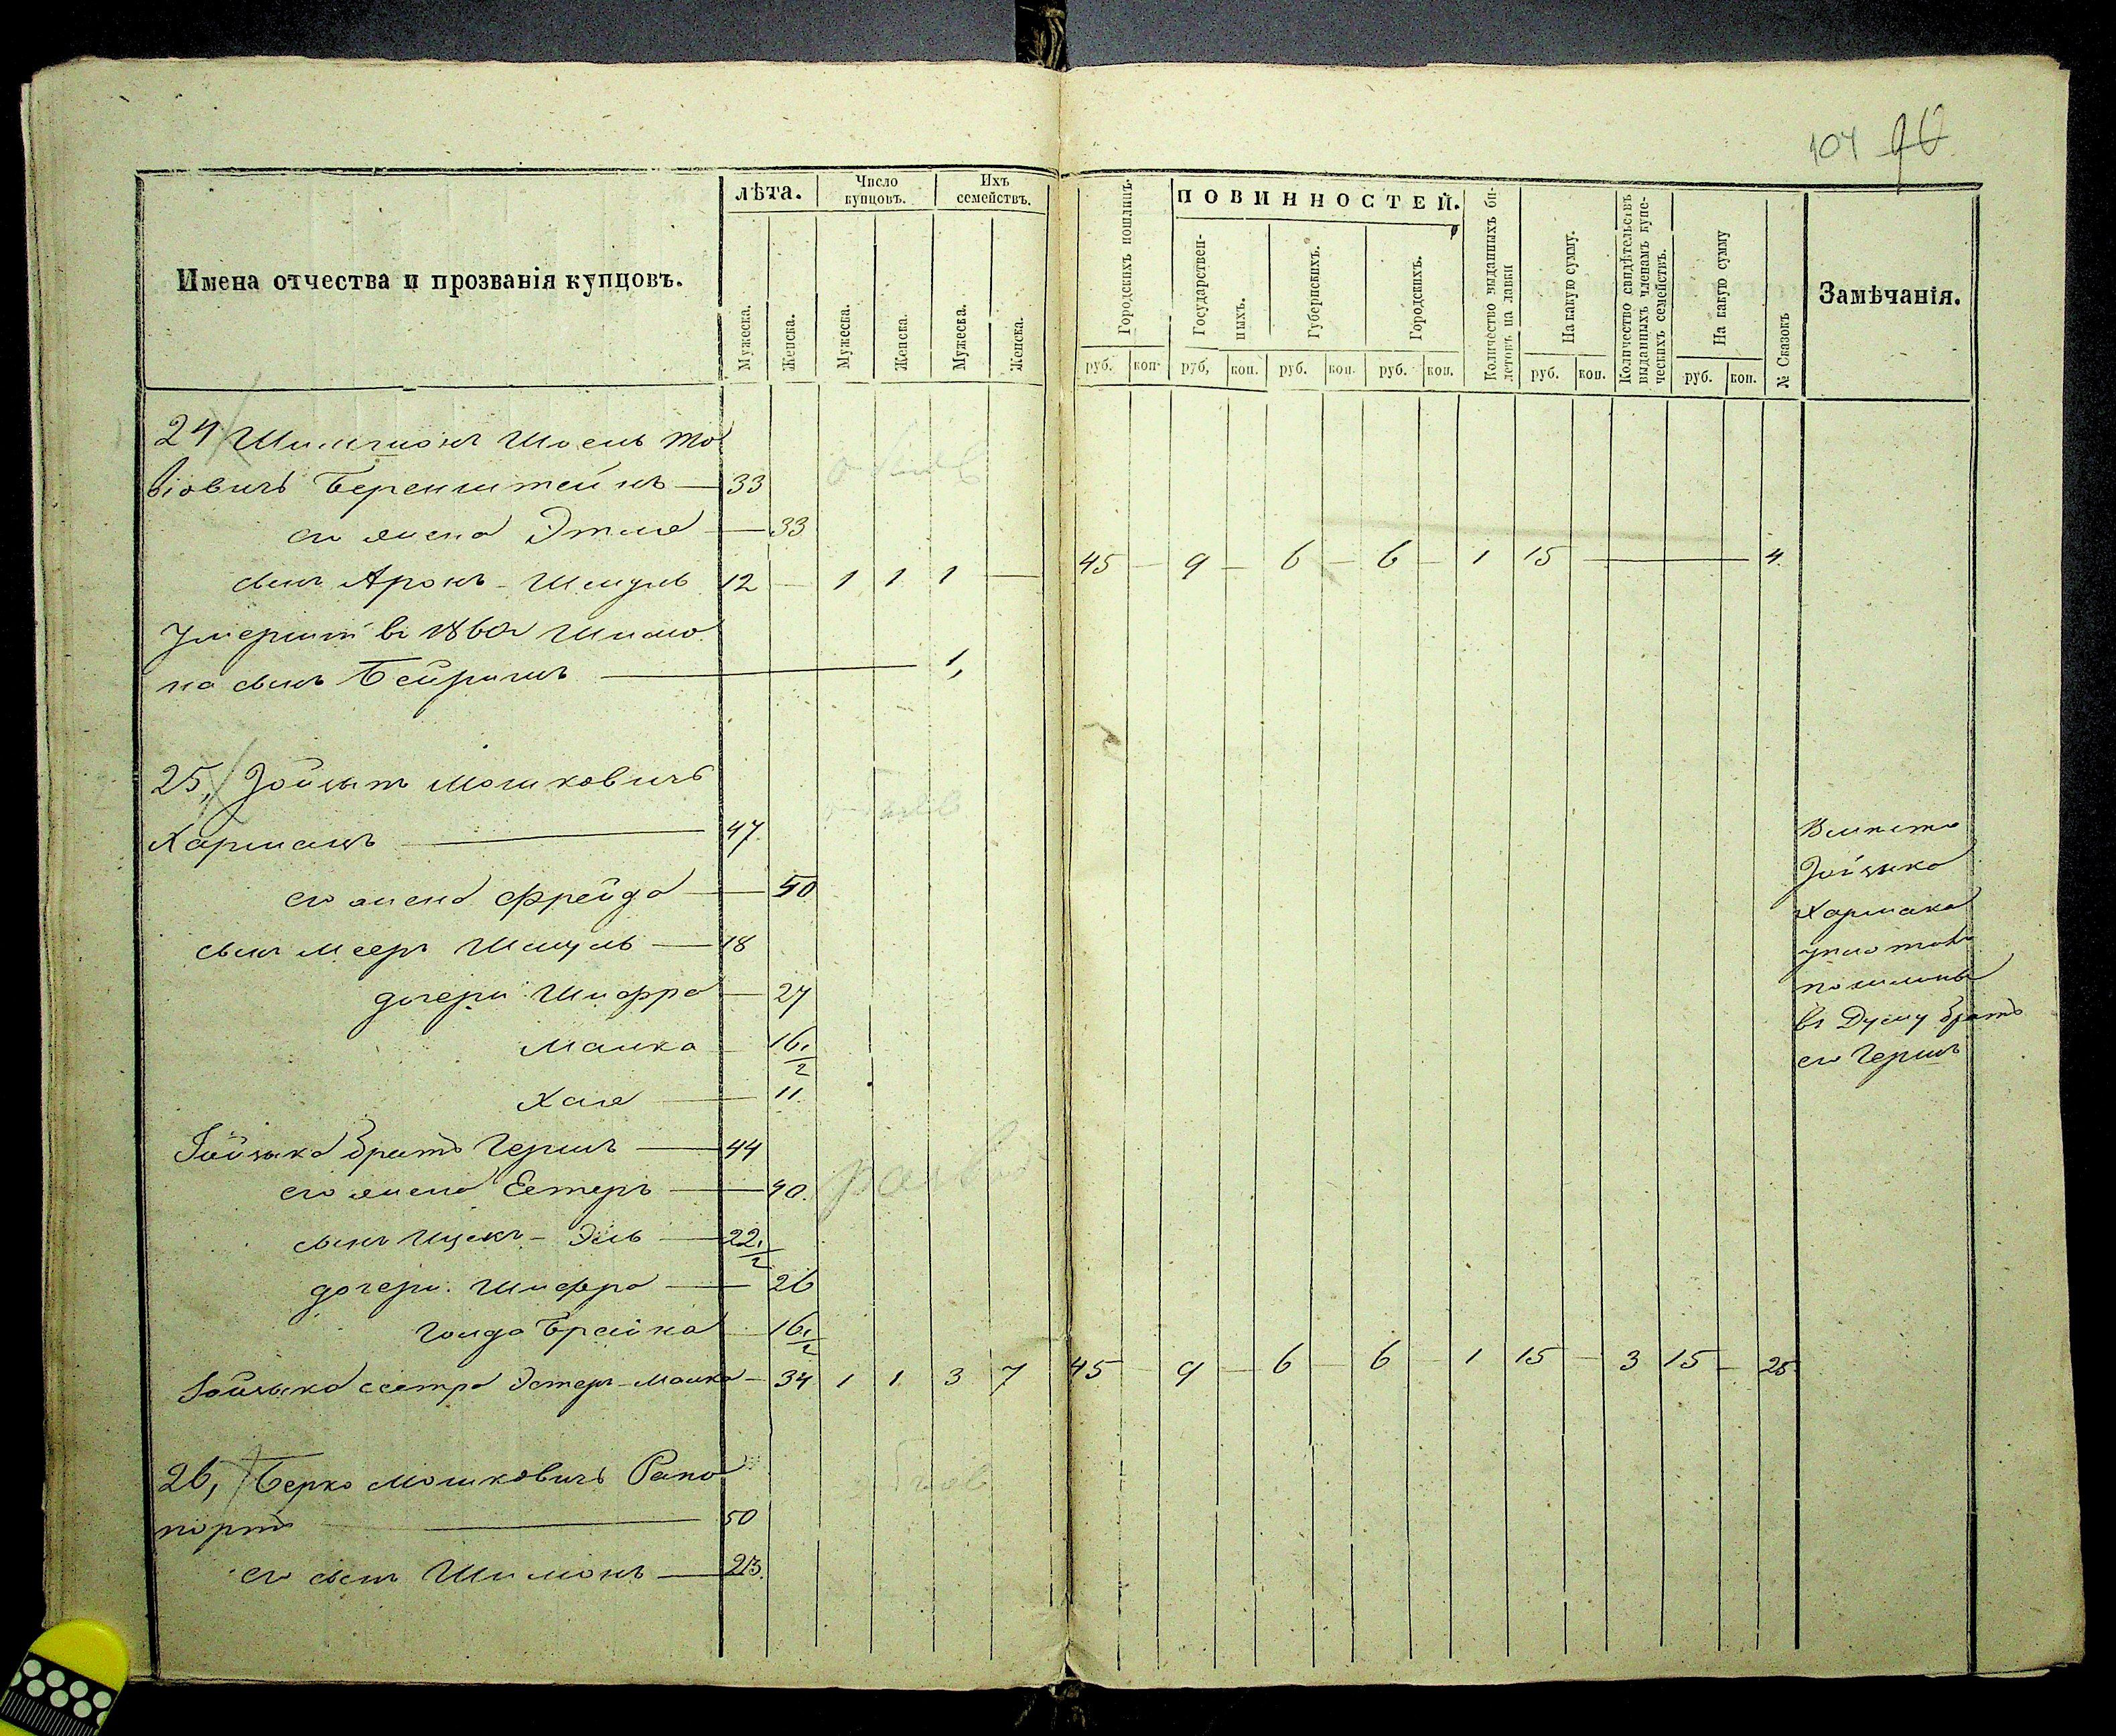 104 90
Имена отчества и прозванія купцовъ.
лѣта.
Число купцовъ.
Ихъ семействъ.
Мужеска. Женска. Мужеска. Женска. Мужеска. Женска.
Городскихъ пошлинъ.
ПОВИННОСТЕЙ.
Государственныхъ.
Губернскихъ.
Городскихъ.
Количество выданныхъ билетовъ на лавки
На какую сумму.
Количество свидѣтельствъ выданныхъ членамъ купеческихъ семействъ.
На какую сумму
№ Сказокъ
Замѣчанія.
руб. коп. руб, коп. руб. коп. руб. коп. руб. коп. руб. коп.
24
біовичъ Беренштейнъ — 33
его жена Этля — 33
сынъ Аронъ - Шмуль 12 — 1 1 1 — 45 — 9 — 6 — 6 — 1 15 — 4.
Умершій въ 1860 Шимо
на сынъ Бейришъ — 1,
25, Мошковичъ
Харманъ — 47.
его жена Фрейда — 50
сынъ Мееръ Шмуль — 18
дочери Шифра — 27
Малка — 16 1/2
Хая — 11.
братъ Гершъ — 44
его жена Естеръ — 40.
сынъ Ицекъ - — 22 1/2
дочери. Шифра — 26
Голда Брайна — 16 1/2
сестра Эстеръ - Малка — 34 1 1 3 7 45 — 9 — 6 — 6 — 1 15 — 3 15 — 25.
Вмѣсто
Хармана
пошлины
въ Думу братъ
его Гершъ
26, Берко Мошковичъ Рапо
портъ — 50
его сынъ Шимонъ — 23.